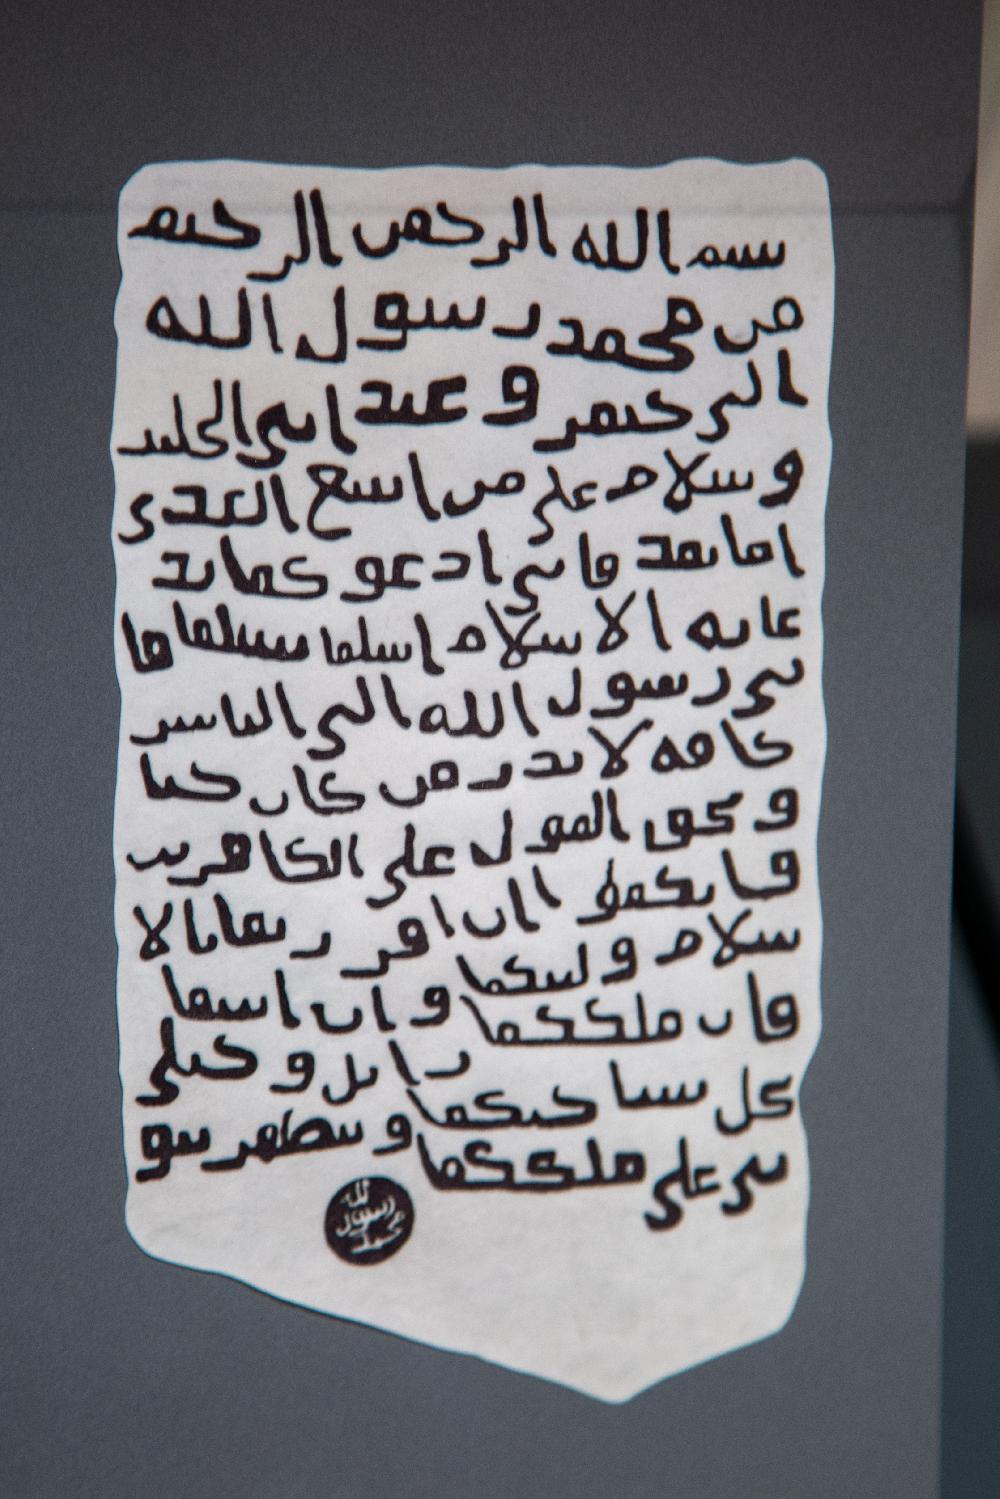 بسم الله الرحمن الرحيم
من محمد رسول الله
الى جيفر وعبد ابنى الجلند
وسلام على من اتبع الهدى
اما بعد فانى ادعو كما بد
عايه الاسلام اسلما تسلما فا
نى رسول الله الى الناس
كافه لانذر من كان حيا
ويحق القول على الكافرين
فانكما ان اقررتما بالا
سلام وليتكما وان ابيتما
فان ملككما زايل وخيلى
تحل بساحتكما وتظهر نبو
تى على ملككما
الله
رسول
محمد